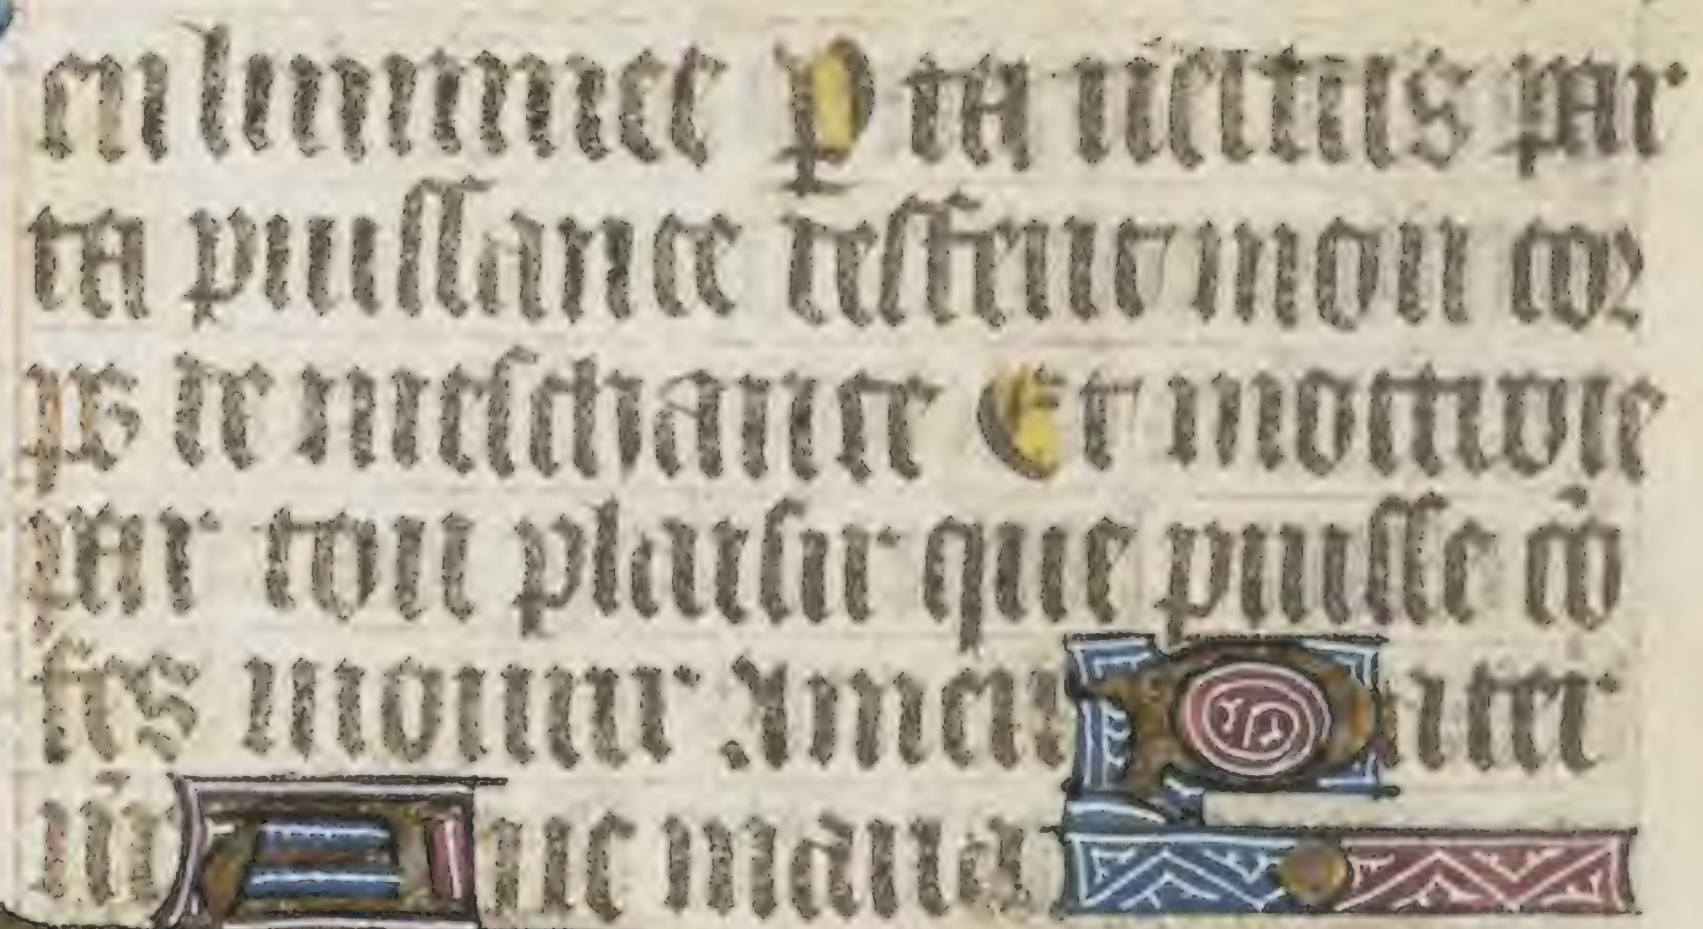 en lumiere Par ta uertus par
ta puissance deffent mon cor
ps de mescheance Et mottroie
par ton plaisir que puisse cō
fes mourir Amen Pater
nr̄ Aue maria